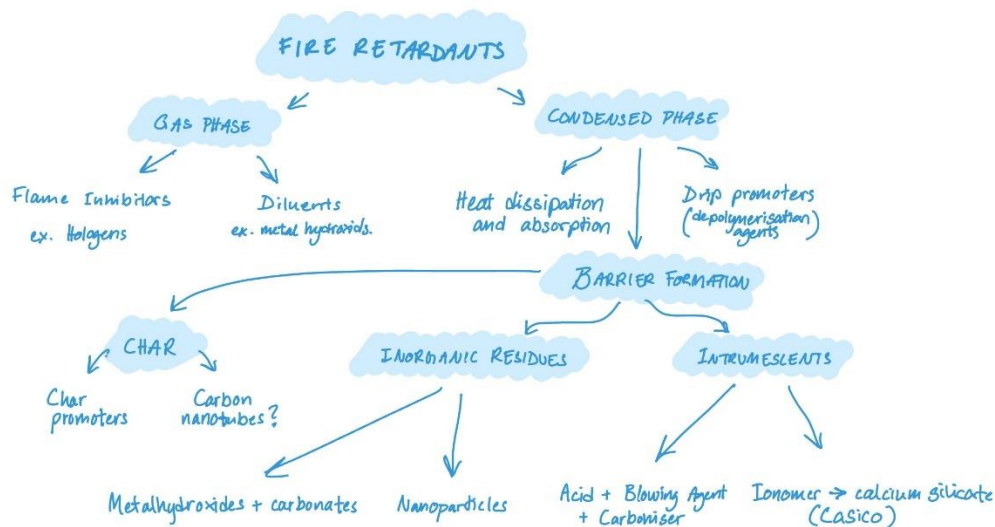 FIRE RETARDANTS
GAS PHASE
CONDENSED PHASE
Flame Inhibitors
ex. Halogens
Diluents
ex. metal hydroxids.
Heat dissipation
and absorption
Drip promoters
(depolymerisation
agents)
BARRIER FORMATION
CHAR
INORGANIC RESIDUES
INTRUMESCENTS
Char
promoters
Carbon
nanotubes?
Metalhydroxides + carbonates
Nanoparticles
Acid + Blowing Agent
+ Carboniser
Ionomer → calcium silicate
(Casico)